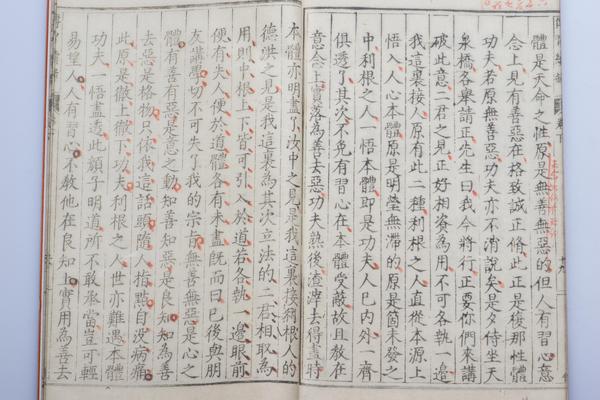 體是天命之性原是無善無惡的但人有習心意
念上見有善惡在格致誠正脩此正是復那性體
功夫若原無善惡功夫亦不消說矣是夕侍坐天
泉橋各舉請正先生曰我今將行正要你們來講
破此意二君之見正好相資為用不可各執一邊
我這裏接人原有此二種利根之人直從本源上
悟入人心本體原是明瑩無滯的原是箇未發之
中利根之人一悟本體即是功夫人已內外一齊
俱透了其次不免有習心在本體受蔽故且教在
意念上實落為善去惡功夫熟後渣滓去得盡時
本體亦明盡了汝中之見是我這裏接利根人的
德洪之見是我這裏為其次立法的二君相取為
用則中根上下皆可引入於道若各執一邊眼前
便有失人便於道體各有未盡既而曰已後與朋
友講學切不可失了我的宗旨無善無惡是心之
體有善有惡是意之動知善知惡是良知為善
去惡是格物只依我這話頭隨人指點自沒病痛
此原是徹上徹下功夫利根之人世亦難遇本體
功夫一悟盡透此顏子明道所不敢承當豈可輕
易望人人有習心不教他在良知上實用為善去